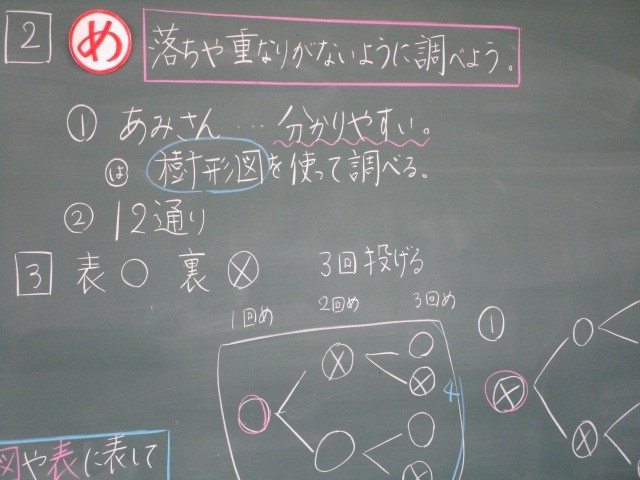 2 め 落ちや重なりがないように調べよう。
① あみさん … 分かりやすい。
は 樹形図を使って調べる。
② 12通り
3 表 ○ 裏 ⊗ 3回投げる
1回め 2回め 3回め
①
4
図や表に表して